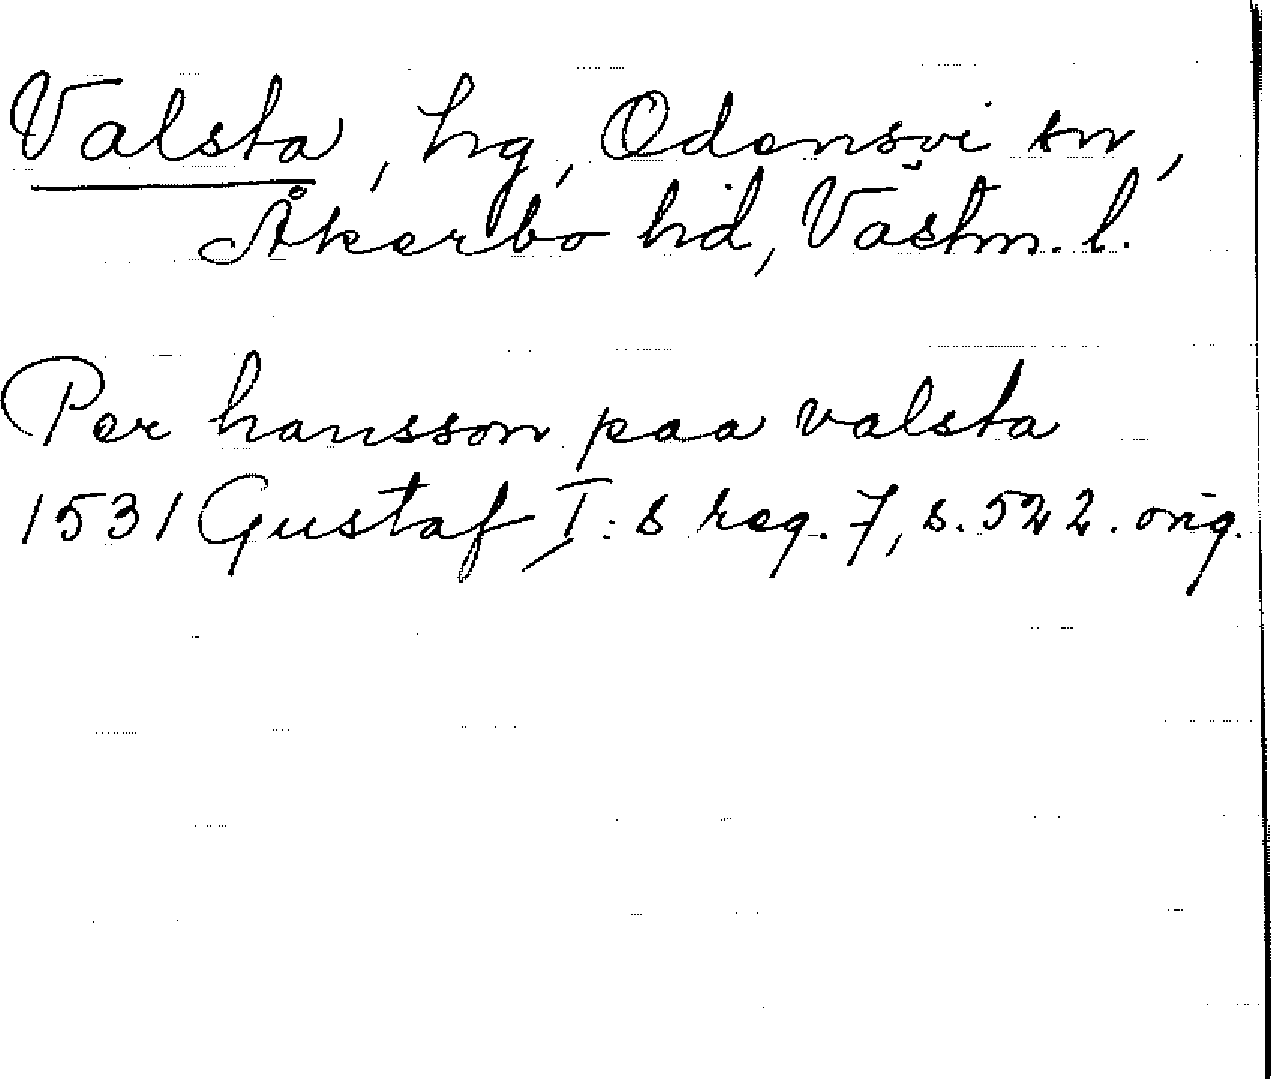 Valsta, hg, Odensvi sn,
Åkerbo hd, Västm. l.
Per hansson paa valsta
1531 Gustaf I:s reg. 7, s. 522. orig.